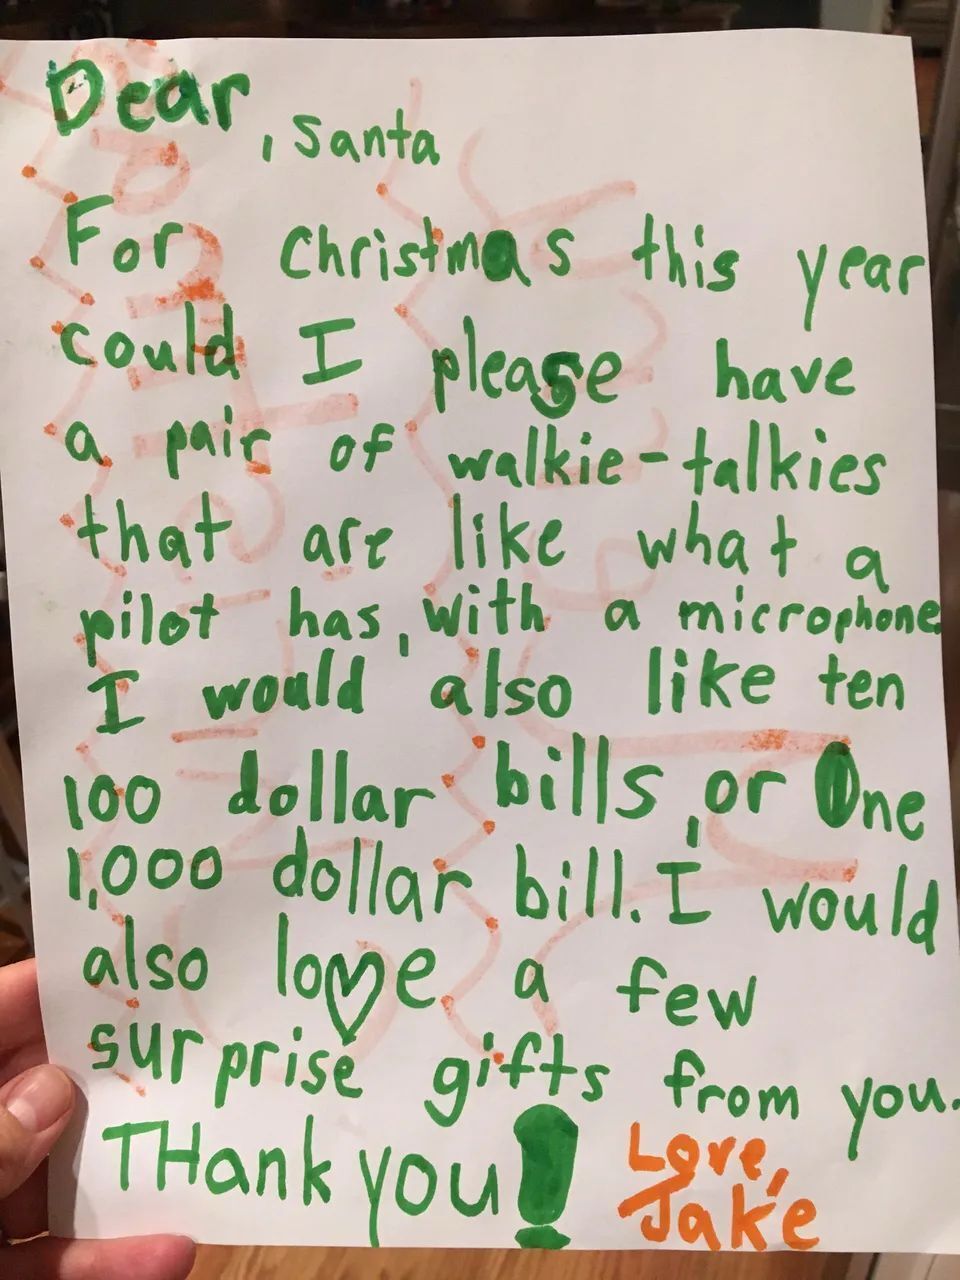 Dear, Santa
For Christmas this year
could I please have
a pair of walkie-talkies
that are like what a
pilot has, with a microphone.
I would also like ten
100 dollar bills, or One
1,000 dollar bill. I would
also love a few
surprise gifts from you.
THank you!
Love,
Jake